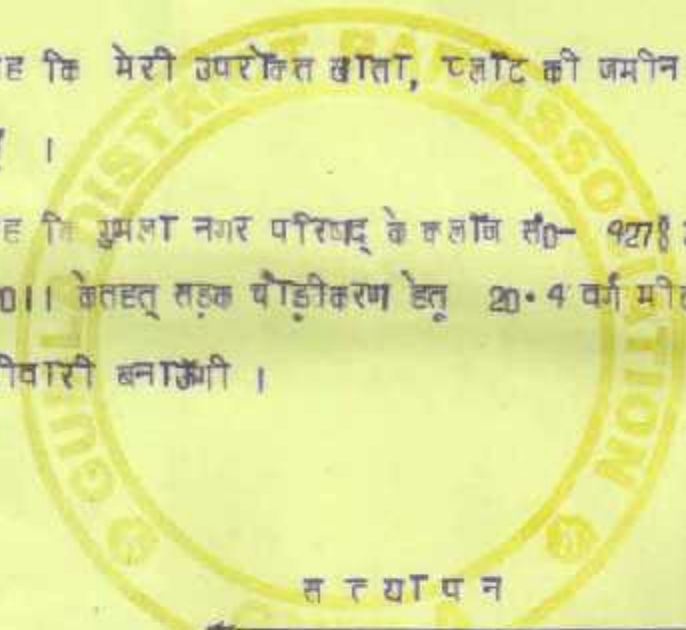 ह कि मेरी उपरोक्त खाता, प्लॉट की जमीन
।
ह कि गुमला नगर परिषद् के क्लॉज सं0- 427
011 केतहत् सड़क चौड़ीकरण हेतू 20.4 वर्ग मीट
ीवारी बनाऊँगी ।
स त्या प न
GUMLA DISTRICT BAR ASSOCIATION